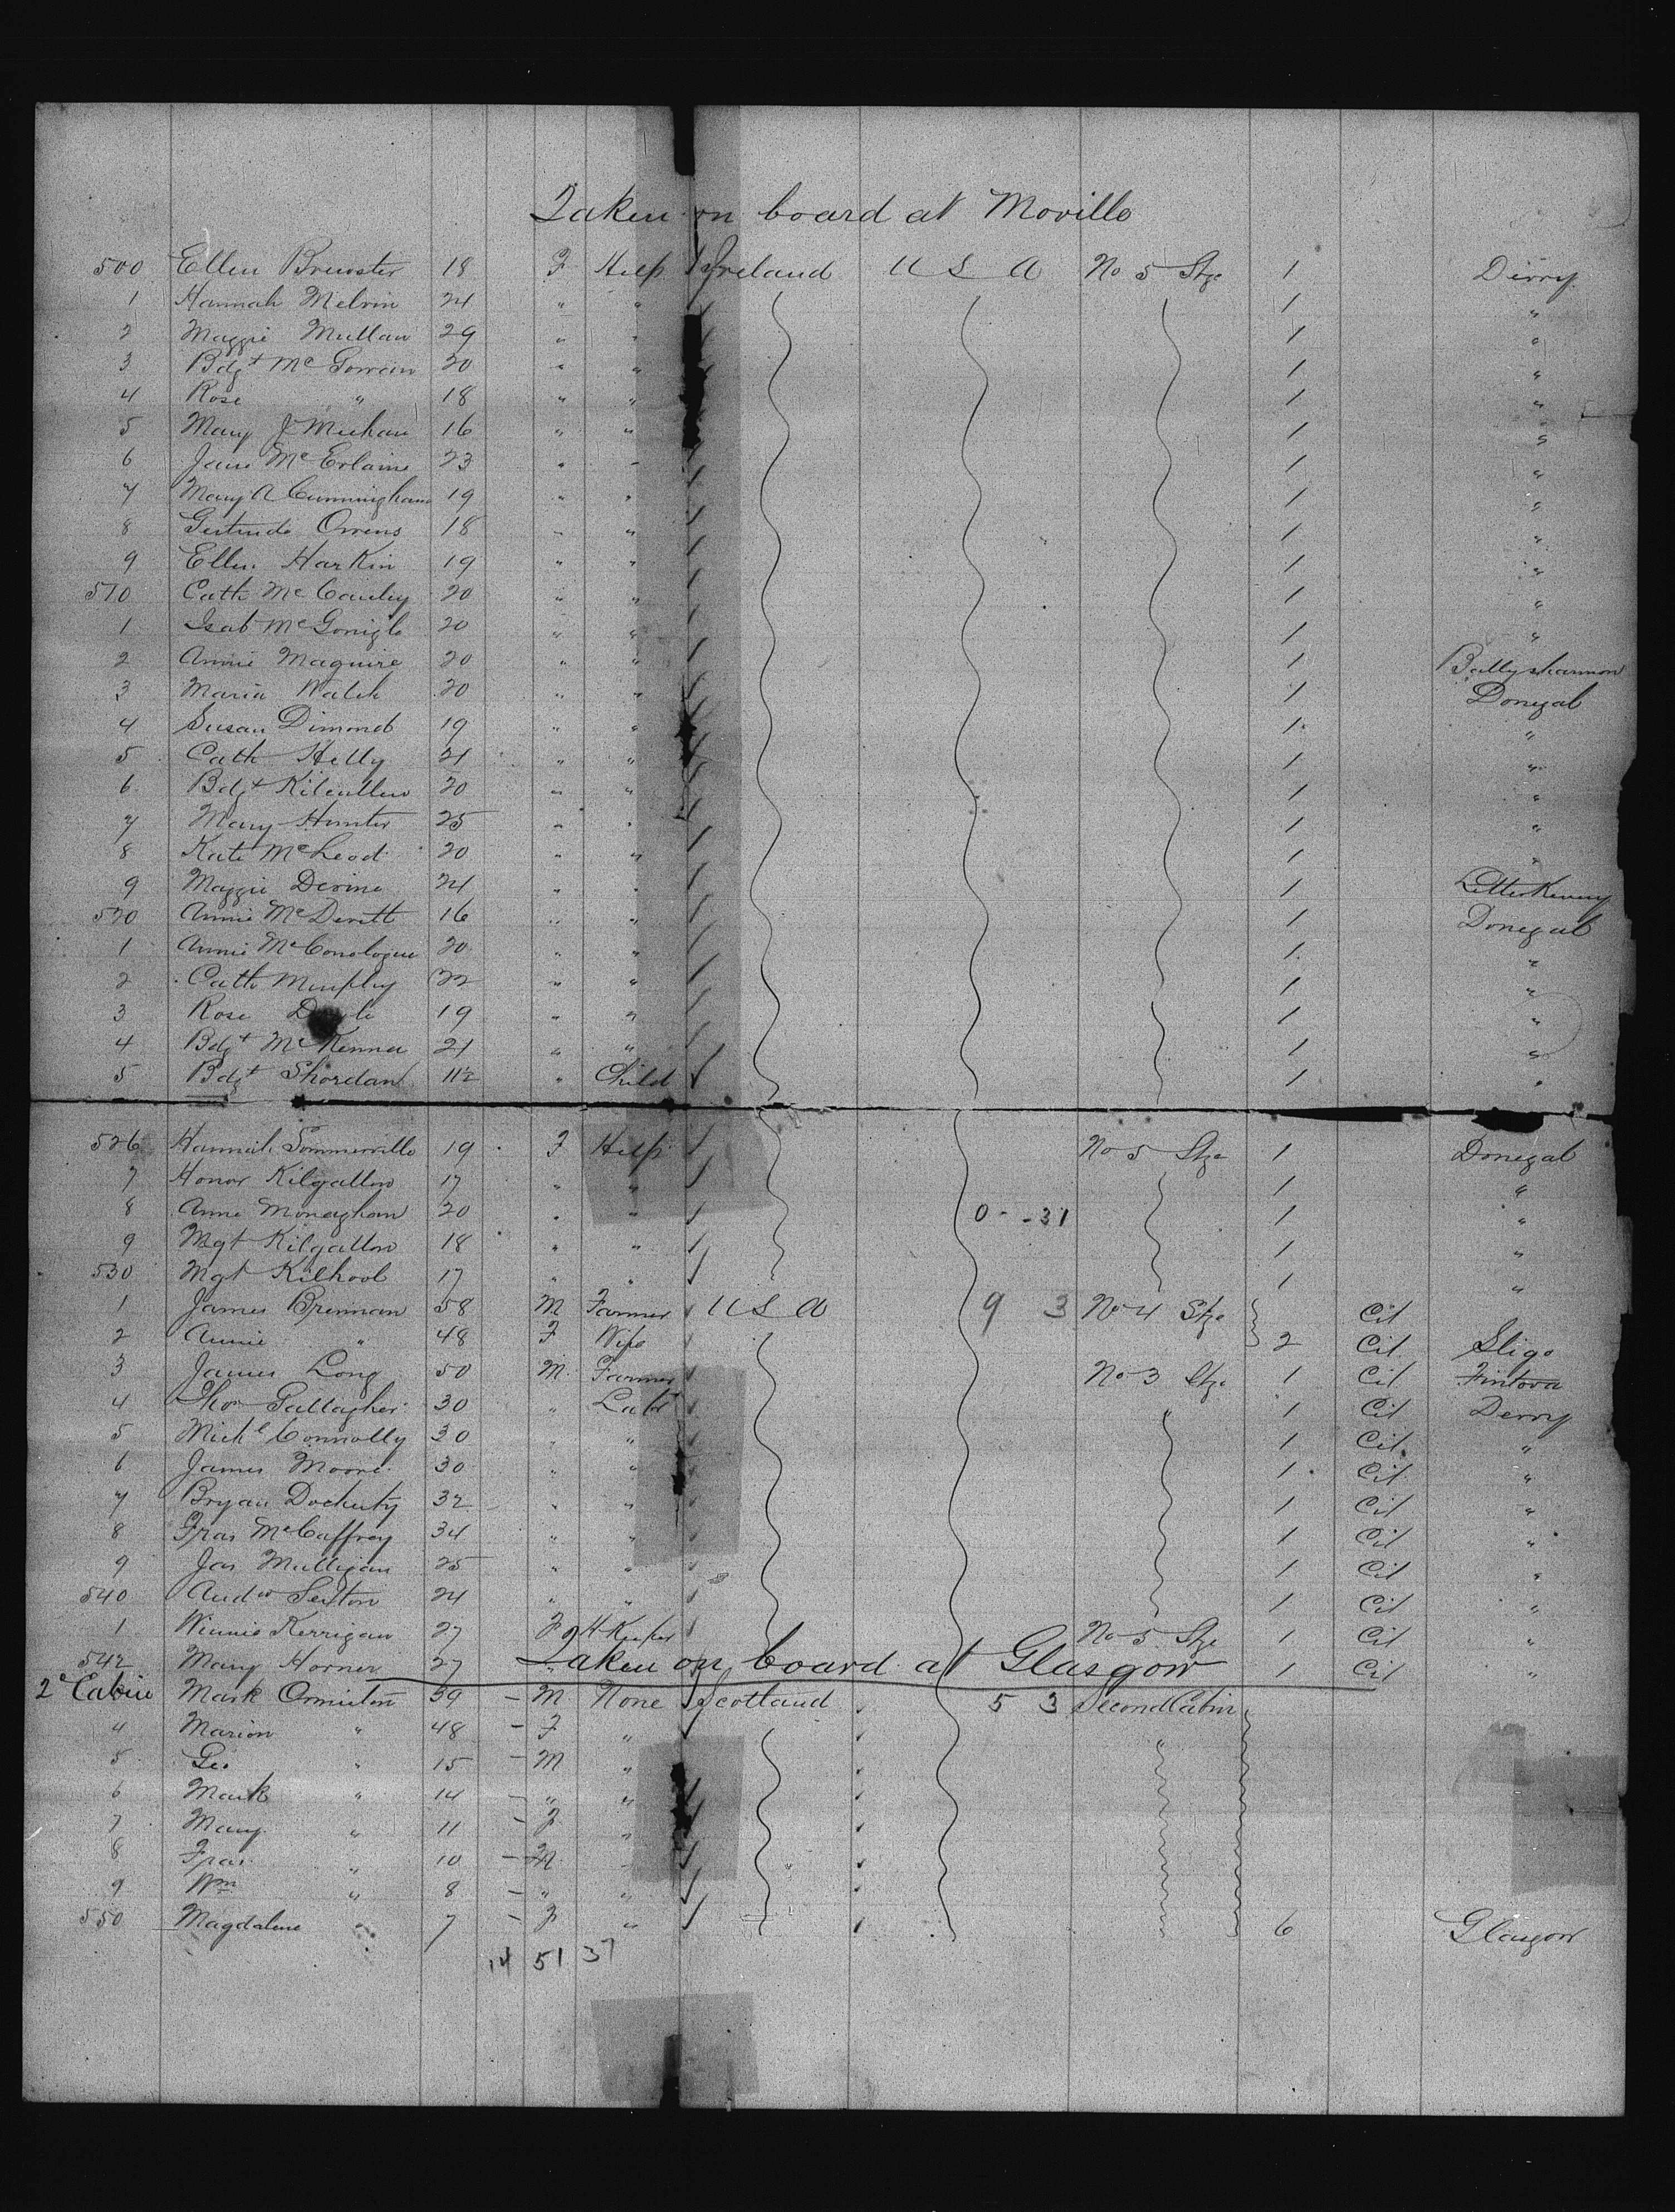 Taken on board at Moville
500 Ellen Brewster 18 F Help Ireland U S A No 5 Stge 1 Derry
1 Hannah Melvin 24 " " 1 "
2 Maggie Mullan 29 " " 1 "
3 Bdgt Mc Gowan 20 " " 1 "
4 Rose " 18 " " 1 "
5 Mary J Meehan 16 " " 1 "
6 Jane Mc Erlaine 23 " " 1 "
7 Mary A Cunningham 19 " " 1 "
8 Gertrude Owens 18 " " 1 "
9 Ellen Harkin 19 " " 1 "
510 Cath Mc Cauley 20 " " 1 "
1 Isab Mc Gonigle 20 " " 1 "
2 Annie Maguire 20 " " 1 Ballyshannon
3 Maria Walsh 20 " " 1 Donegal
4 Susan Dimond 19 " " 1 "
5 Cath Helly 21 " " 1 "
6 Bdgt Kilcullen 20 " " 1 "
7 Mary Hunter 25 " " 1 "
8 Kate McLeod 20 " " 1 "
9 Maggie Devine 24 " " 1 Letterkenny
520 Annie McDevitt 16 " " 1 Donegal
1 Annie McConologue 20 " " 1 "
2 Cath Murphy 22 " " 1 "
3 Rose 19 " " 1 "
4 Bdgt McKenna 21 " " 1 "
5 Bdgt Shordan 11½ " Child 1 "
526 Hannah Sommerville 19 F Help No 5 Stge 1 Donegal
7 Honor Kilgallon 17 " " 1 "
8 Anne Monaghan 20 " " 0 - - 31 1 "
9 Mgt Kilgallon 18 " " 1 "
530 Mgt Kilhool 17 " " 1 "
1 James Brennan 58 M Farmer U S A 9 3 No 4 Stge Cit
2 Annie " 48 F Wife 2 Cit Sligo
3 James Long 50 M Farmer No 3 Stge 1 Cit Fintona
4 Thos Gallagher 30 " Labr " 1 Cit Derry
5 Michl Connolly 30 " " 1 Cit "
6 James Moore 30 " " 1 Cit "
7 Bryan Docherty 32 " " 1 Cit "
8 Fras McCaffrey 34 " " 1 Cit "
9 Jas Mulligan 25 " " 1 Cit "
540 Andw Sexton 24 " " 1 Cit "
1 Winnie Kerrigan 27 F H Keeper No 5 Stge 1 Cit "
542 Mary Horner 27 " 1 Cit "
Taken on board at Glasgow
2d Cabin Mark Ormiston 39 - M None Scotland 5 3 Second Cabin
4 Marion " 48 - F " "
5 Geo " 15 - M "
6 Mark " 14 - " "
7 Mary " 11 - F "
8 Fras " 10 - M "
9 Wm " 8 - " "
550 Magdalene 7 - F " 6 Glasgow
14 51 37